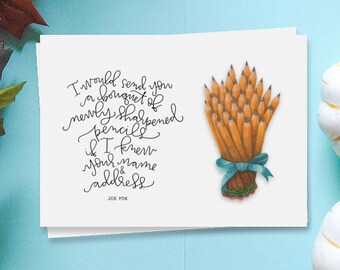 I would send you
a bouquet of
newly sharpened
pencils
if I knew
your name
&
address
JOE FOX